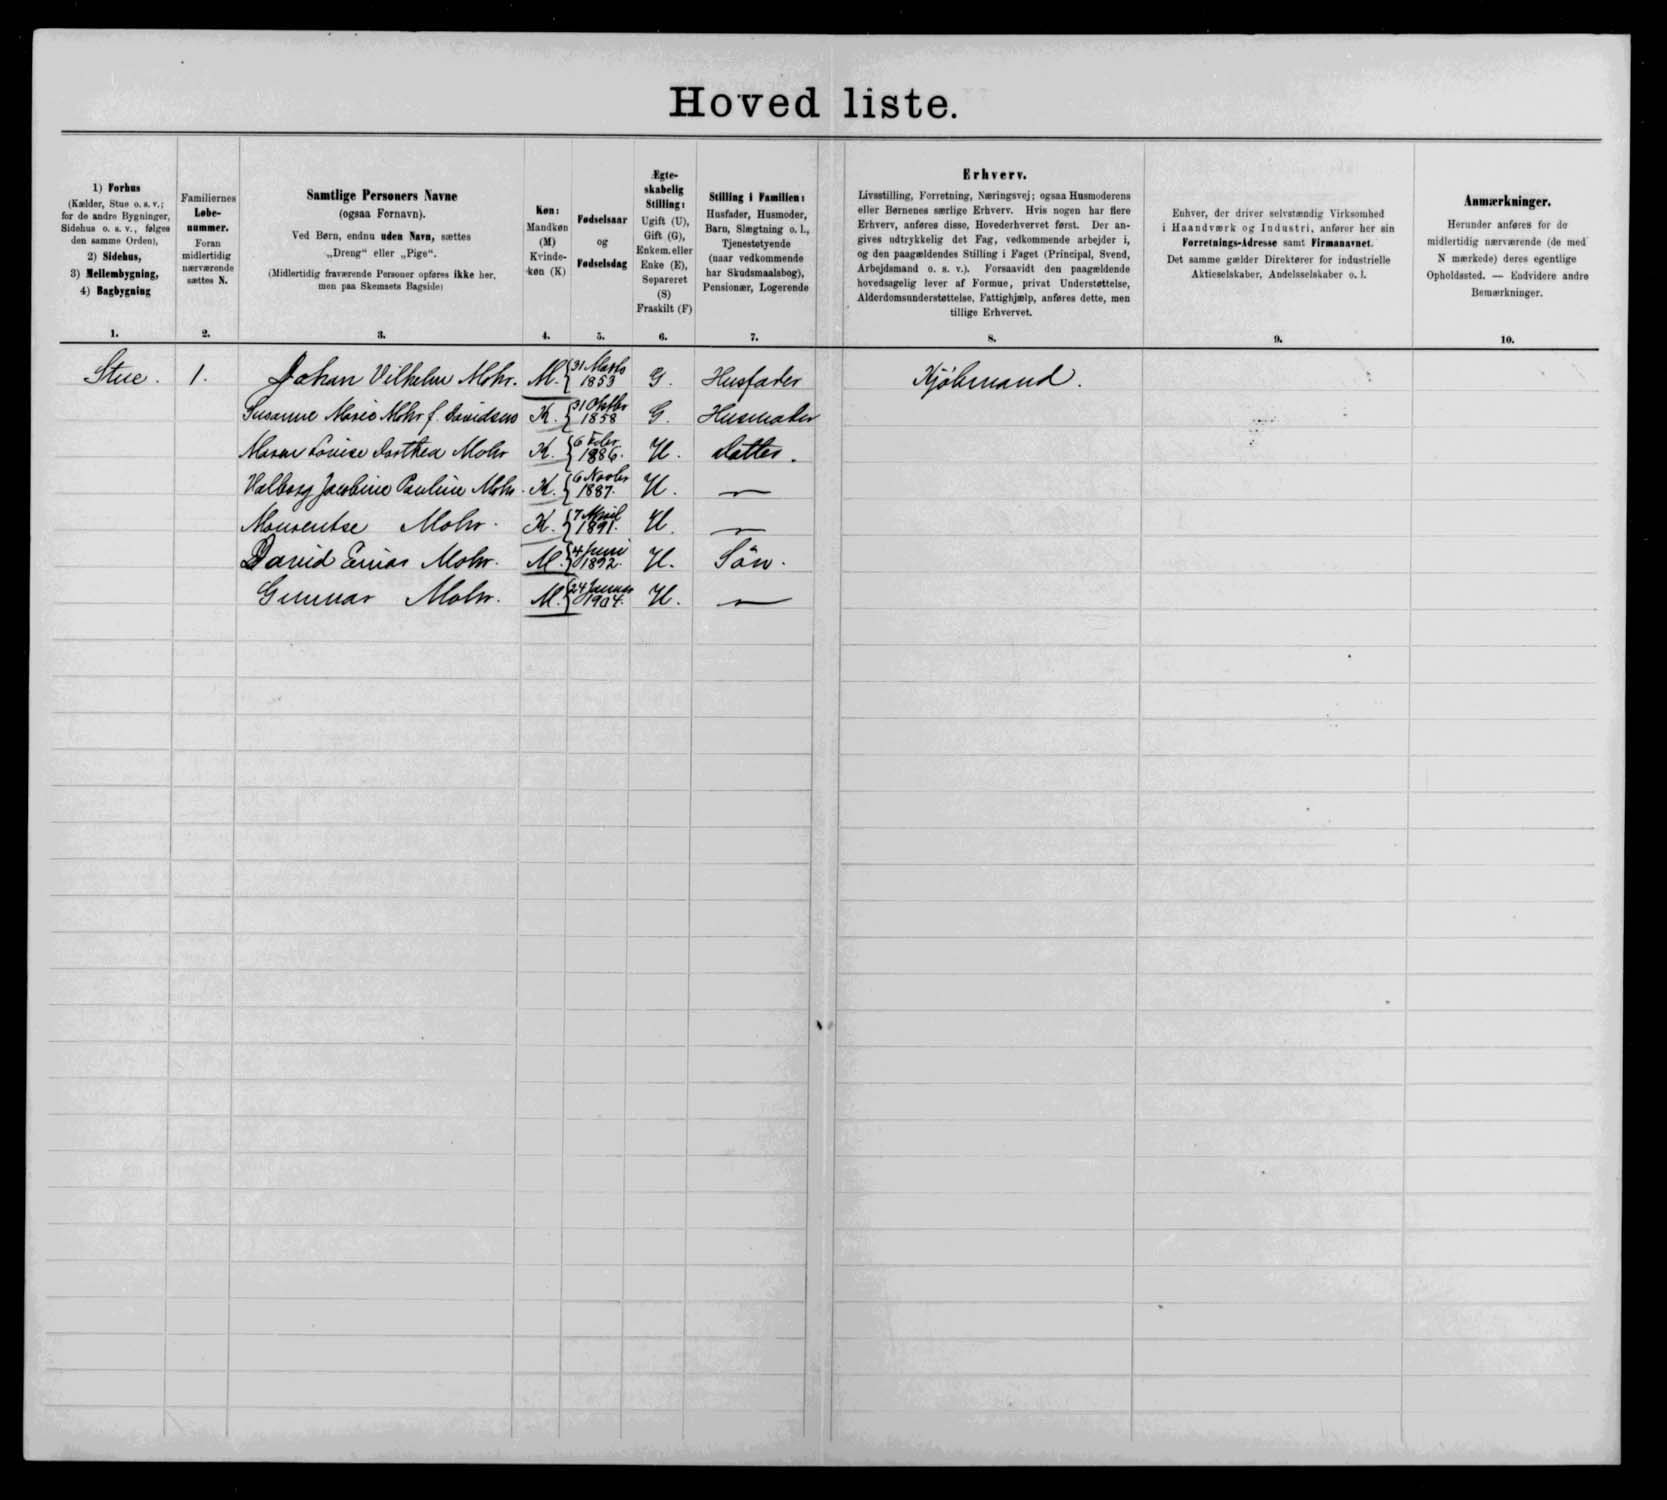 Hoved liste.
1) Forhus
(Kælder, Stue o. s. v.;
for de andre Bygninger,
Sidehus o. s. v., følges
den samme Orden),
2) Sidehus,
3) Mellembygning,
4) Bagbygning
1.
Familiernes
Løbe-
nummer.
Foran
midlertidig
nærværende
sættes N.
2.
Samtlige Personers Navne
(ogsaa Fornavn).
Ved Børn, endnu uden Navn, sættes
„Dreng“ eller „Pige“.
(Midlertidig fraværende Personer opføres ikke her,
men paa Skemaets Bagside)
3.
Køn:
Mandkøn
(M)
Kvinde-
køn (K)
4.
Fødselsaar
og
Fødselsdag
5.
Ægte-
skabelig
Stilling:
Ugift (U),
Gift (G),
Enkem. eller
Enke (E),
Separeret
(S)
Fraskilt (F)
6.
Stilling i Familien:
Husfader, Husmoder,
Barn, Slægtning o. l.,
Tjenestetyende
(naar vedkommende
har Skudsmaalsbog),
Pensionær, Logerende
7.
Erhverv.
Livsstilling, Forretning, Næringsvej; ogsaa Husmoderens
eller Børnenes særlige Erhverv. Hvis nogen har flere
Erhverv, anføres disse, Hovederhvervet først. Der an-
gives udtrykkelig det Fag, vedkommende arbejder i,
og den paagældendes Stilling i Faget (Principal, Svend,
Arbejdsmand o. s. v.). Forsaavidt den paagældende
hovedsagelig lever af Formue, privat Understøttelse,
Alderdomsunderstøttelse, Fattighjælp, anføres dette, men
tillige Erhvervet.
8.
Enhver, der driver selvstændig Virksomhed
i Haandværk og Industri, anfører her sin
Forretnings-Adresse samt Firmanavnet.
Det samme gælder Direktører for industrielle
Aktieselskaber, Andelsselskaber o. l.
9.
Anmærkninger.
Herunder anføres for de
midlertidig nærværende (de med
N mærkede) deres egentlige
Opholdssted. — Endvidere andre
Bemærkninger.
10.
Stue. 1. Johan Vilhelm Mohr. M. 31 Marts 1853 G. Husfader Kjøbmand.
Susanne Marie Mohr f. Davidsen K. 31 Oktbr 1858 G. Husmoder
Louise Dorthea Mohr K. 6 Febr. 1886. U. Datter.
Valborg Jacobine Pauline Mohr. K. 6 Novbr 1887. U. —
Mohr. K. 7 April 1891. U. —
David Mohr. M. 4 Juni 1892. U. Sön.
Gunnar Mohr. M. 24 Januar 1904. U. —